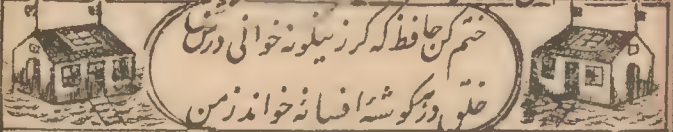 ختم کن حافظ که گر زینگونه خوانی درس
خلق در گوشه افسانه خواند ز من